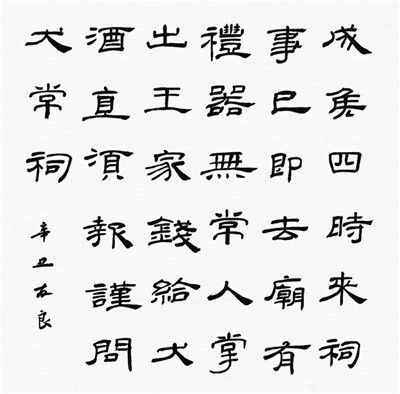 成矦四時來祠
事已即去廟有
禮器無常人掌
出王家錢給犬
酒直須報謹問
大常祠
辛丑友良